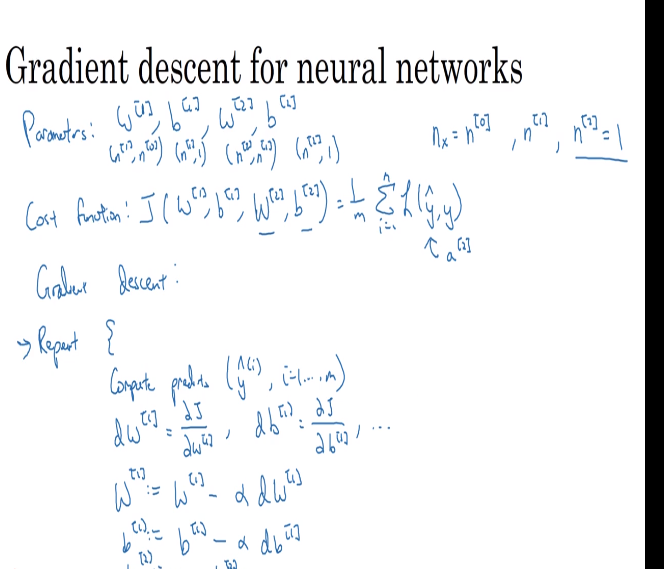 Gradient descent for neural networks
Parameters: W^[1], b^[1], W^[2], b^[2]    n_x = n^[0], n^[1], n^[2] = 1
(n^[1], n^[0]) (n^[1], 1) (n^[2], n^[1]) (n^[2], 1)
Cost function: J(W^[1], b^[1], W^[2], b^[2]) = 1/m Σ_{i=1}^{n} L(ŷ, y)
↑ a^[2]
Gradient descent:
→ Repeat {
Compute predicts (ŷ^(i), i=1...,m)
dW^[1] = ∂J/∂W^[1], db^[1] = ∂J/∂b^[1], ...
W^[1] := W^[1] - α dW^[1]
b^[1] := b^[1] - α db^[1]
[2] [2]